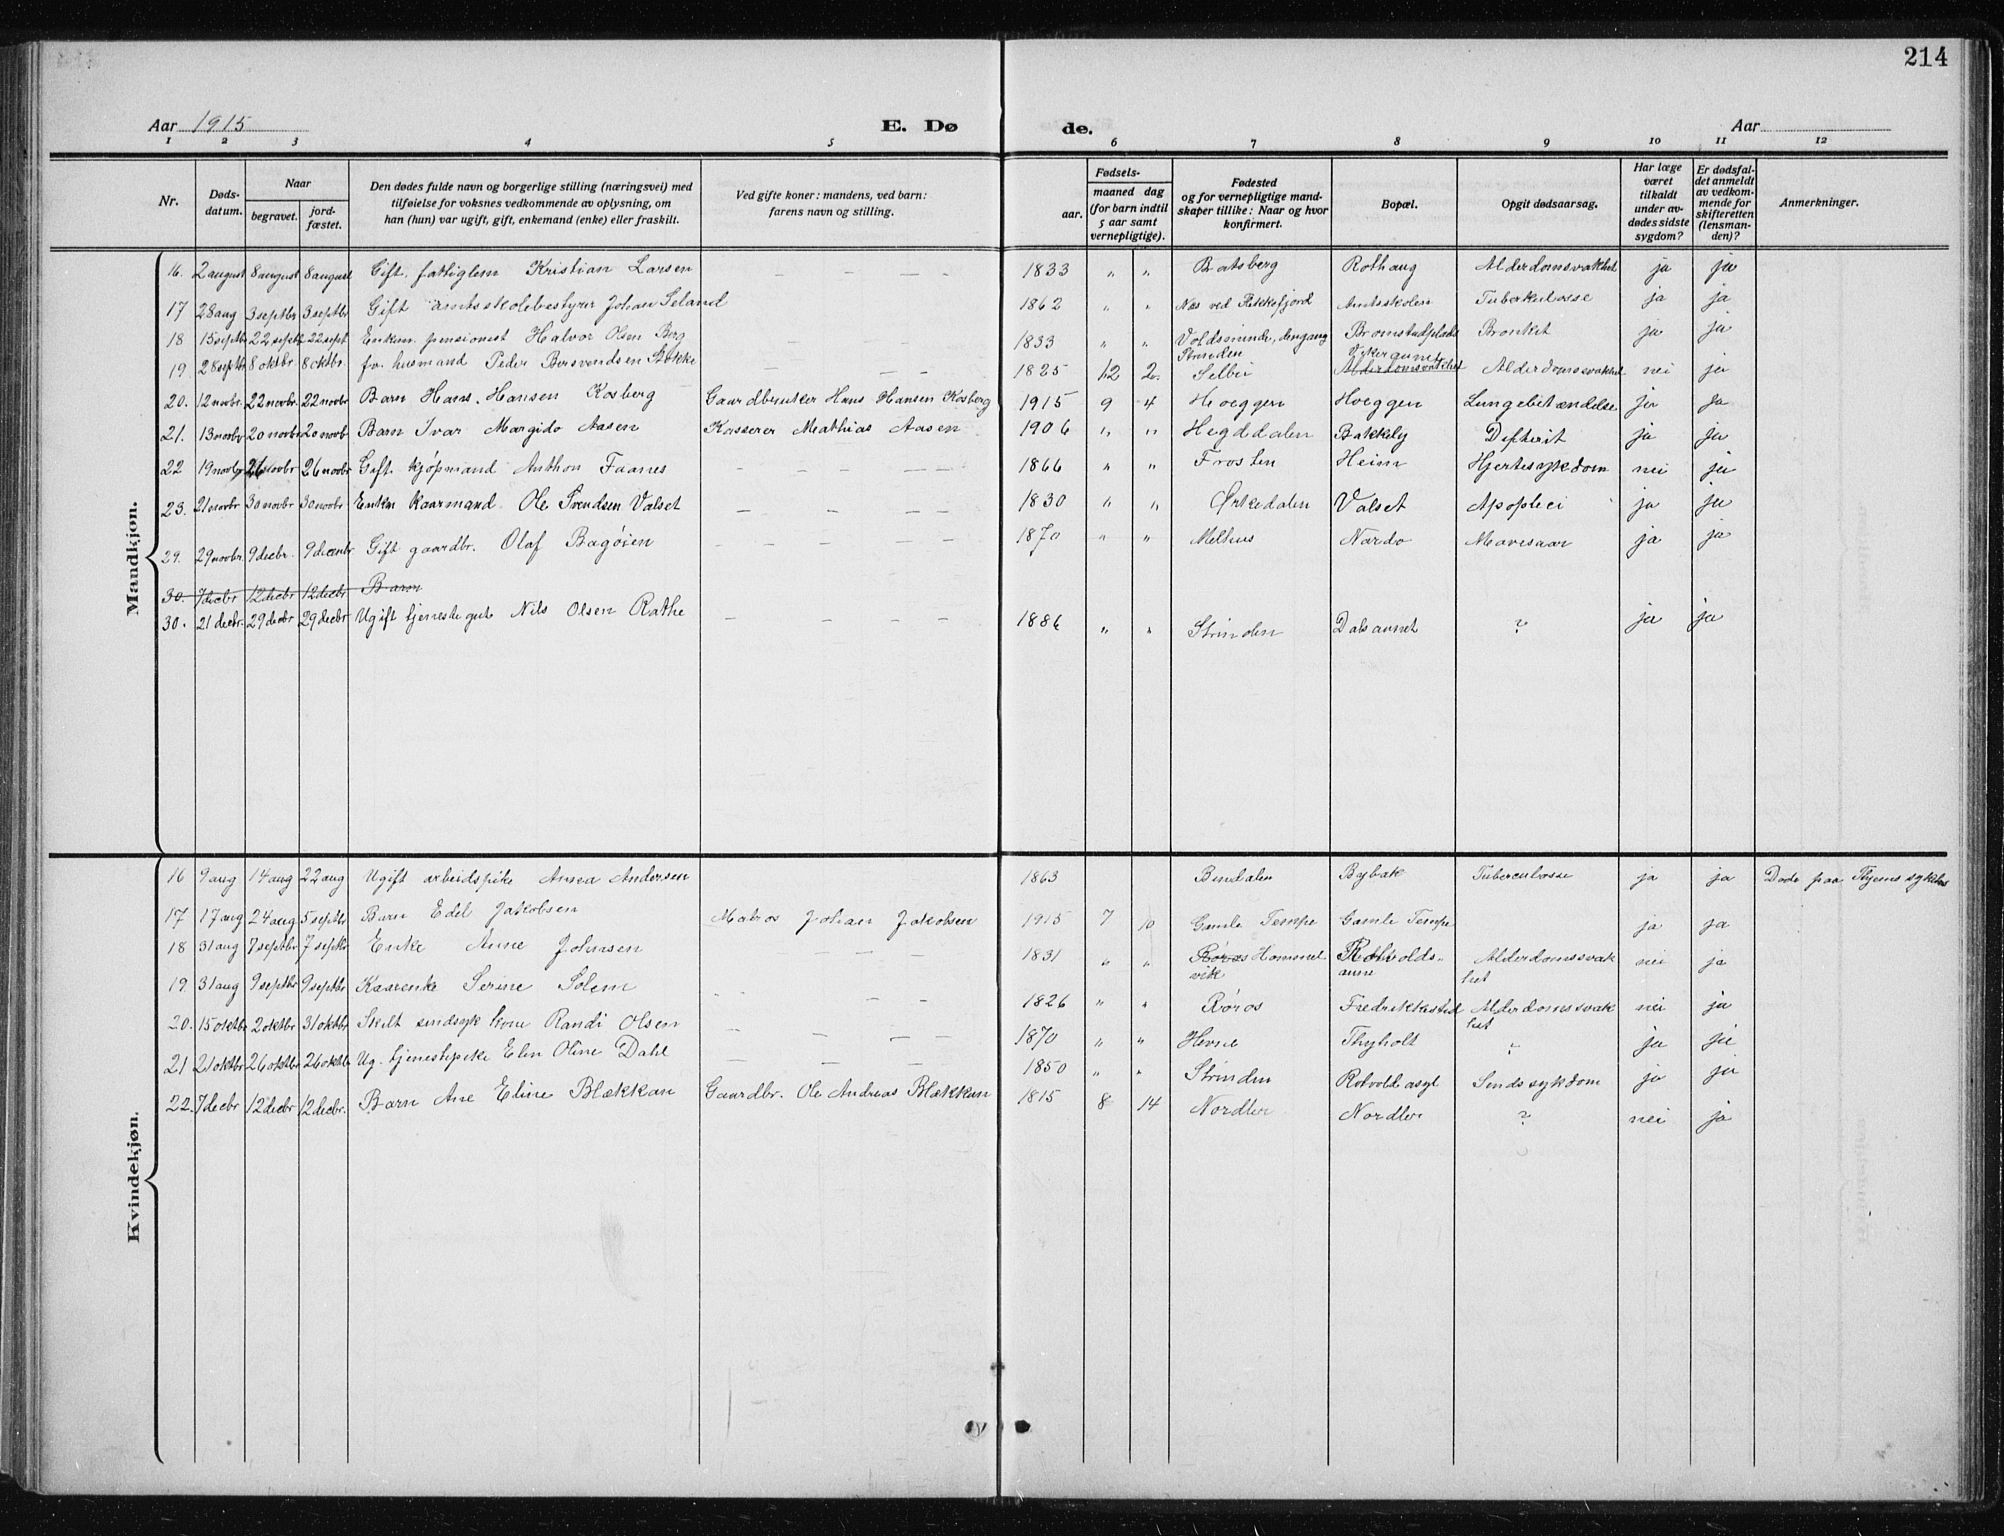 214
Aar 1915 E. Dø de. Aar
1 2 3 4 5 6 7 8 9 10 11 12
Nr. Døds-datum. Naar begravet. jord-fæstet. Den dødes fulde navn og borgerlige stilling (næringsvei) med tilføielse for voksnes vedkommende av oplysning, om han (hun) var ugift, gift, enkemand (enke) eller fraskilt. Ved gifte koner: mandens, ved barn: farens navn og stilling. Fødsels- aar. maaned dag (for barn indtil 5 aar samt vernepligtige). Fødested og for vernepligtige mand-skaper tillike: Naar og hvor konfirmert. Bopæl. Opgit dødsaarsag. Har læge været tilkaldt under av-dødes sidste sygdom? Er dødsfal-det anmeldt av vedkom-mende for skifteretten (lensman-den)? Anmerkninger.
Mandkjøn.
16. 2 august 8 august 8 august Gift. fattiglem Kristian Larsen — — — — 1833 " " Batsberg Rothaug Alderdomsvakhet ja ja
17 28 aug 3 septbr 3 septbr Gift amtsskolebestyrer Johan Seland — — — 1862 " " Nes ved Flekkefjord Amtsskolen Tuberkulosse ja ja
18 15 septbr 22 septbr 22 sept Enkem. pensionist Halvor Olsen Berg — — — — 1833 " " Voldsminde, dengang Strinden Bromstadplads Bronkit ja ja
19. 28 septbr 8 oktbr. 8 oktbr. fv. husmand Peder Bersvendsen Stokke — — — — 1825 12 2. Selbu Vikeraunet Alderdomsvakhet Alderdomssvakhet nei ja
20. 12 novbr. 22 novbr. 22 novbr Barn Hans. Hansen Kosberg Gaardbruker Hans Hansen Kosberg 1915 9 4 Hoeggen Hoeggen Lungebetændelse ja ja
21. 13 novbr 20 novbr 20 novb Barn Ivar Margido Aasen Kasserer Mathias Aasen 1906 " " Hegddalen Bakkely Difterit ja ja
22 19 novbr 26 novbr 26 novbr Gift. kjøpmand Anthon Faanes — — — — 1866 " " Frosten Heim Hjertesykdom nei ja
23. 21 novbr 30 novbr 30 novbr Enkm kaarmand. Ole Svendsen Valset — — — — 1830 " " Ørkedalen Valset Apoplexi ja ja
29. 29 novbr. 9 decbr. 9 decmbr Gift gaardbr. Olaf Bagøien — — — — 1870 " " Melhus Nardo Mavesaar ja ja
30. 7 decbr 12 decbr 12 decbr Barn
30. 21 decbr. 29 decbr 29 decbr Ugift tjenestegut Nils Olsen Rathe — — — — 1886 " " Strinden Dalsaunet ? ja ja
Kvindekjøn.
16 9 aug 14 aug 22 aug Ugift arbeidspike Anna Andersen 1863 Bindalen Bybak Tuberculosse ja ja Døde paa Thjems sykehus
17 17 aug 24 aug 5 septbr Barn Edel Jakobsen Matros Johan Jakobsen 1915 7 10 Gamle Tempe Gamle Tempe ja ja
18 31 aug 7 septbr 7 septbr Enke Anne Johnsen — — — — 1831 " " Røros Hommelvik Rotvolds-aune Alderdomssvakhet nei ja
19. 31 aug 9 septbr 9 septbr Kaarenke Serine Solem — — — 1826 " " Røros Fredrikkestad Alderdomssvakhet nei ja
20. 15 oktbr 2 oktbr 31 oktbr Skilt sindsyk kone Randi Olsen — — — — 1870 " " Hevne Thyholt " ja ja
21 21 oktbr 26 oktbr 26 oktbr Ug. tjenestepike Elen Oline Dahl — — — — 1850 " " Strinden Rotvold asyl Sindssykdom ja ja
22. 7 decbr 12 decbr 12 decbr. Barn Ane Eline Blækkan Gaardbr. Ole Andreas Blækkan 1815 8 14 Nordler Nordler ? nei ja